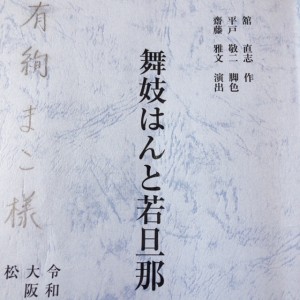 舘 直志 作
平戸 敬二 脚色
齋藤 雅文 演出
舞妓はんと若旦那
有絢まこ様
令和
大阪
松